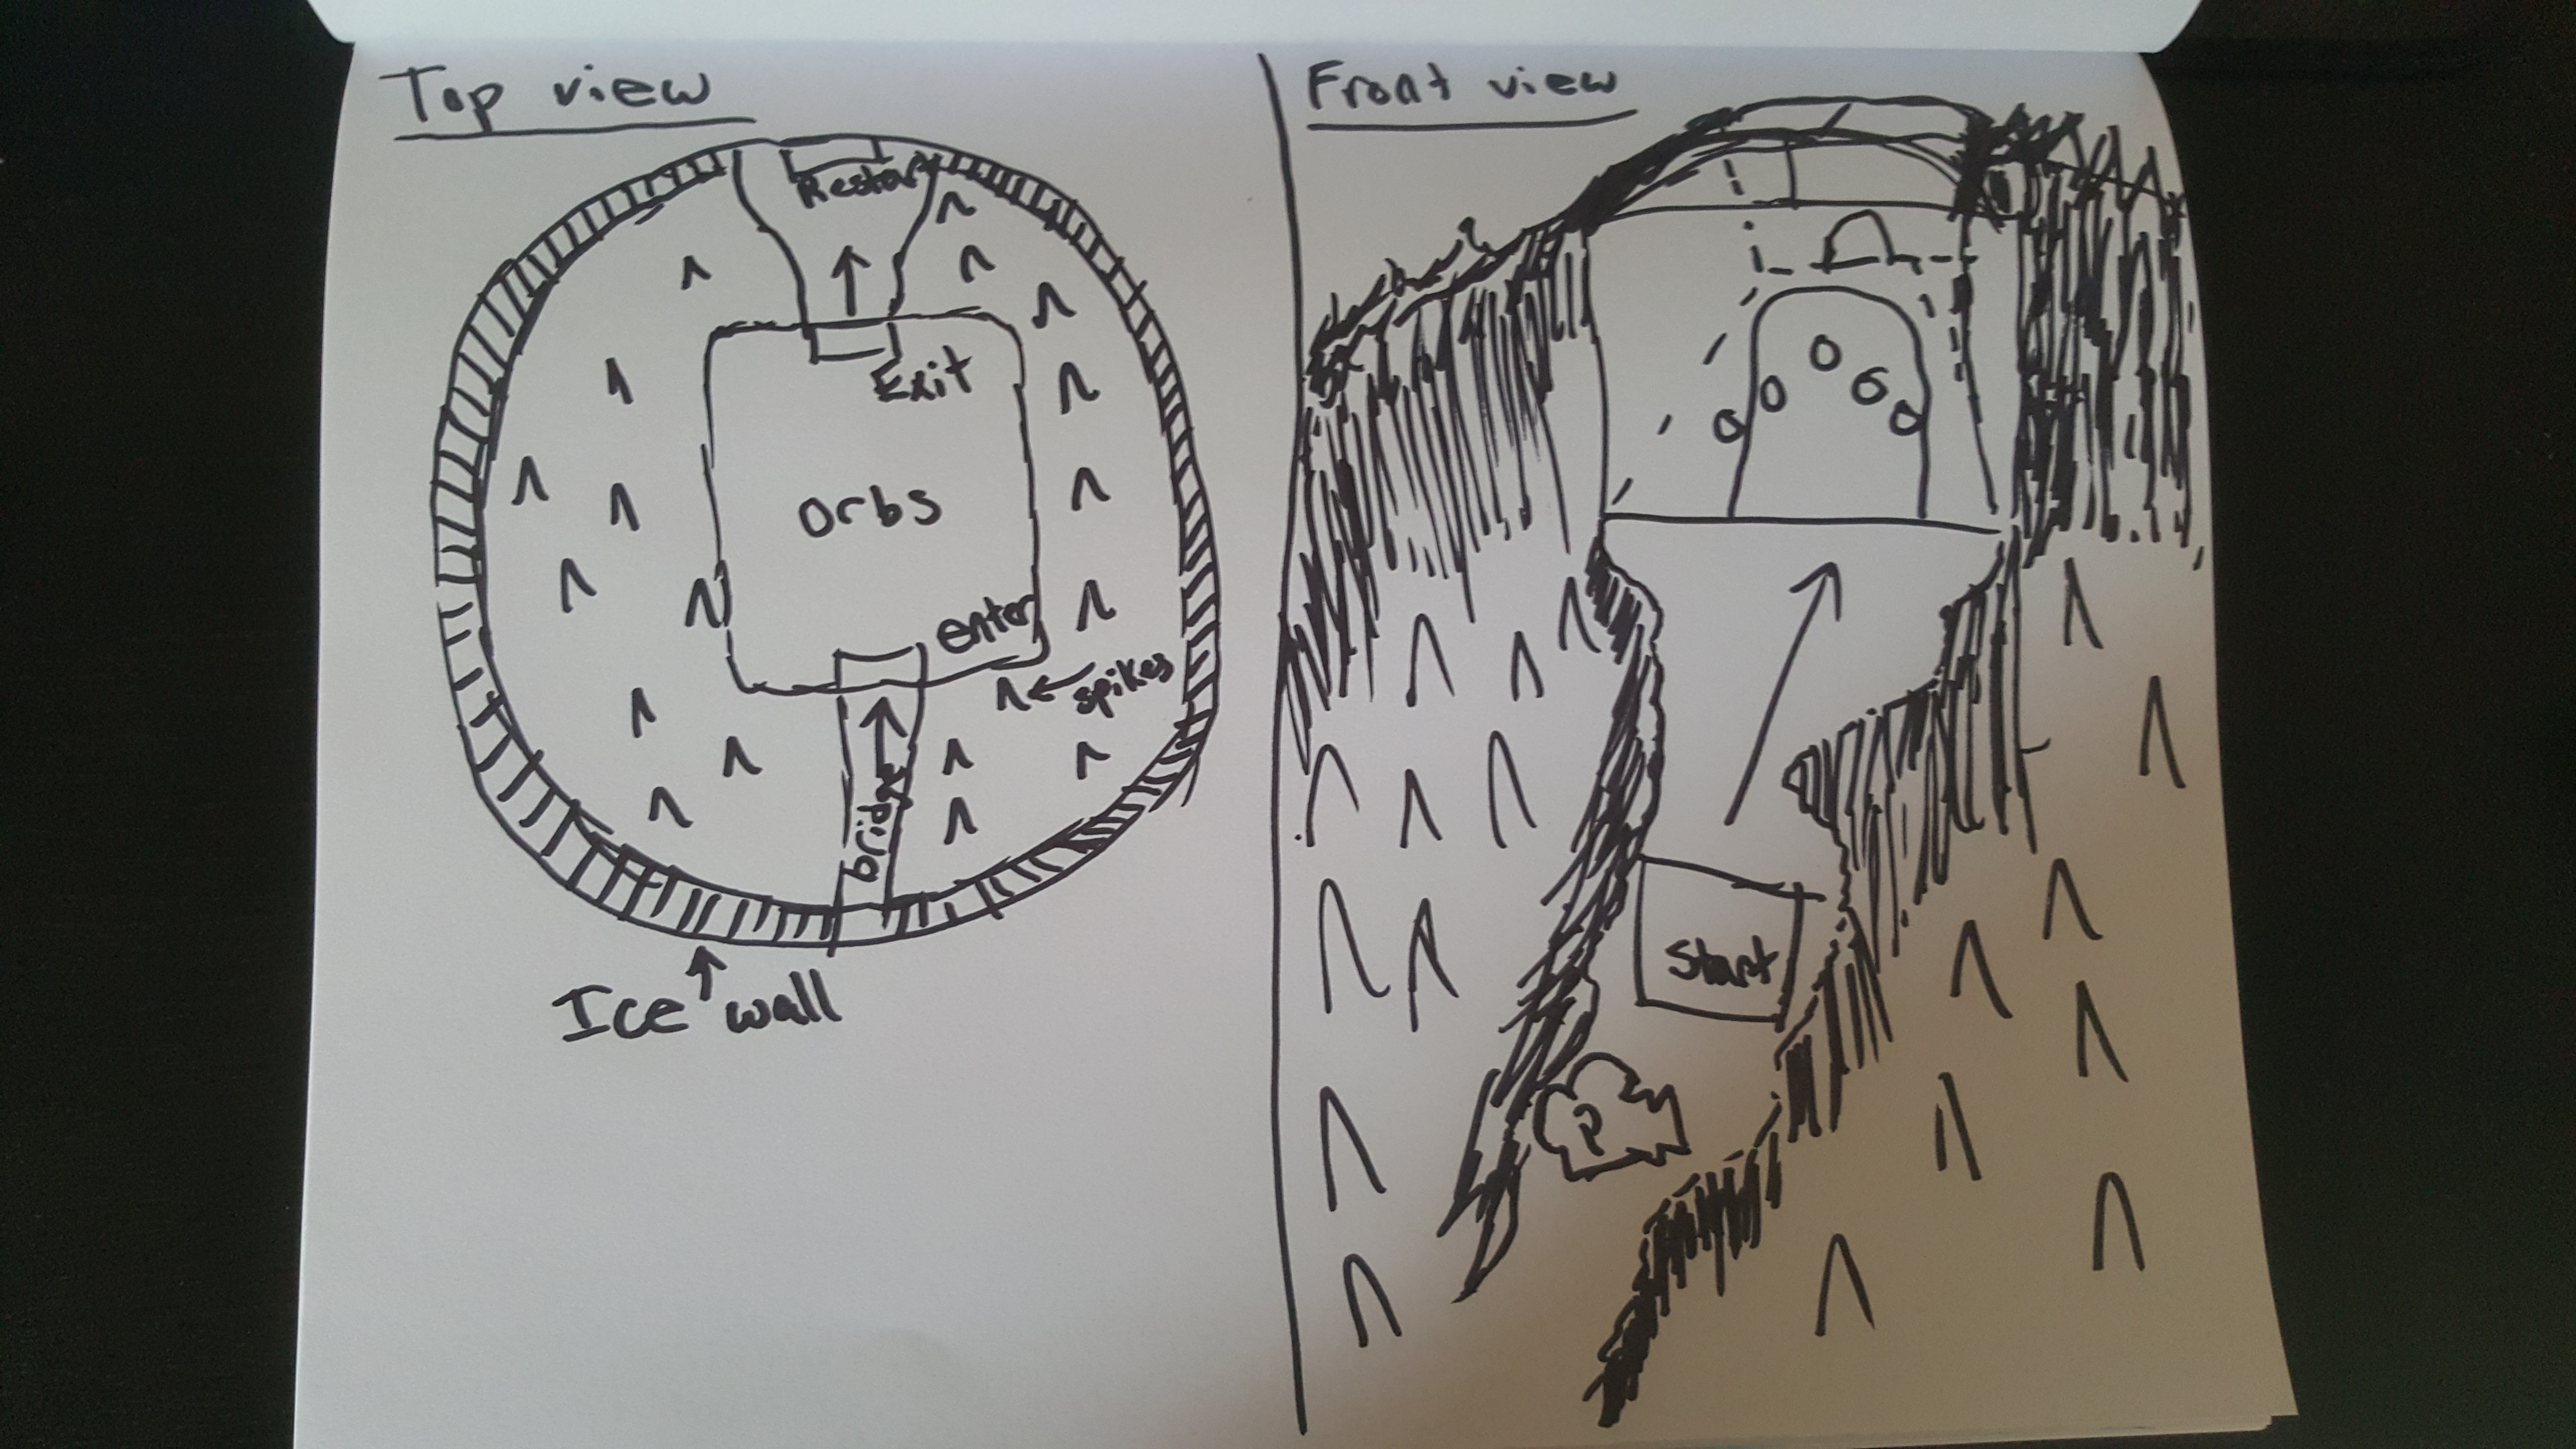 Top view
Restart
Exit
orbs
enter
spikes
bridge
Ice wall
Front view
Start
P